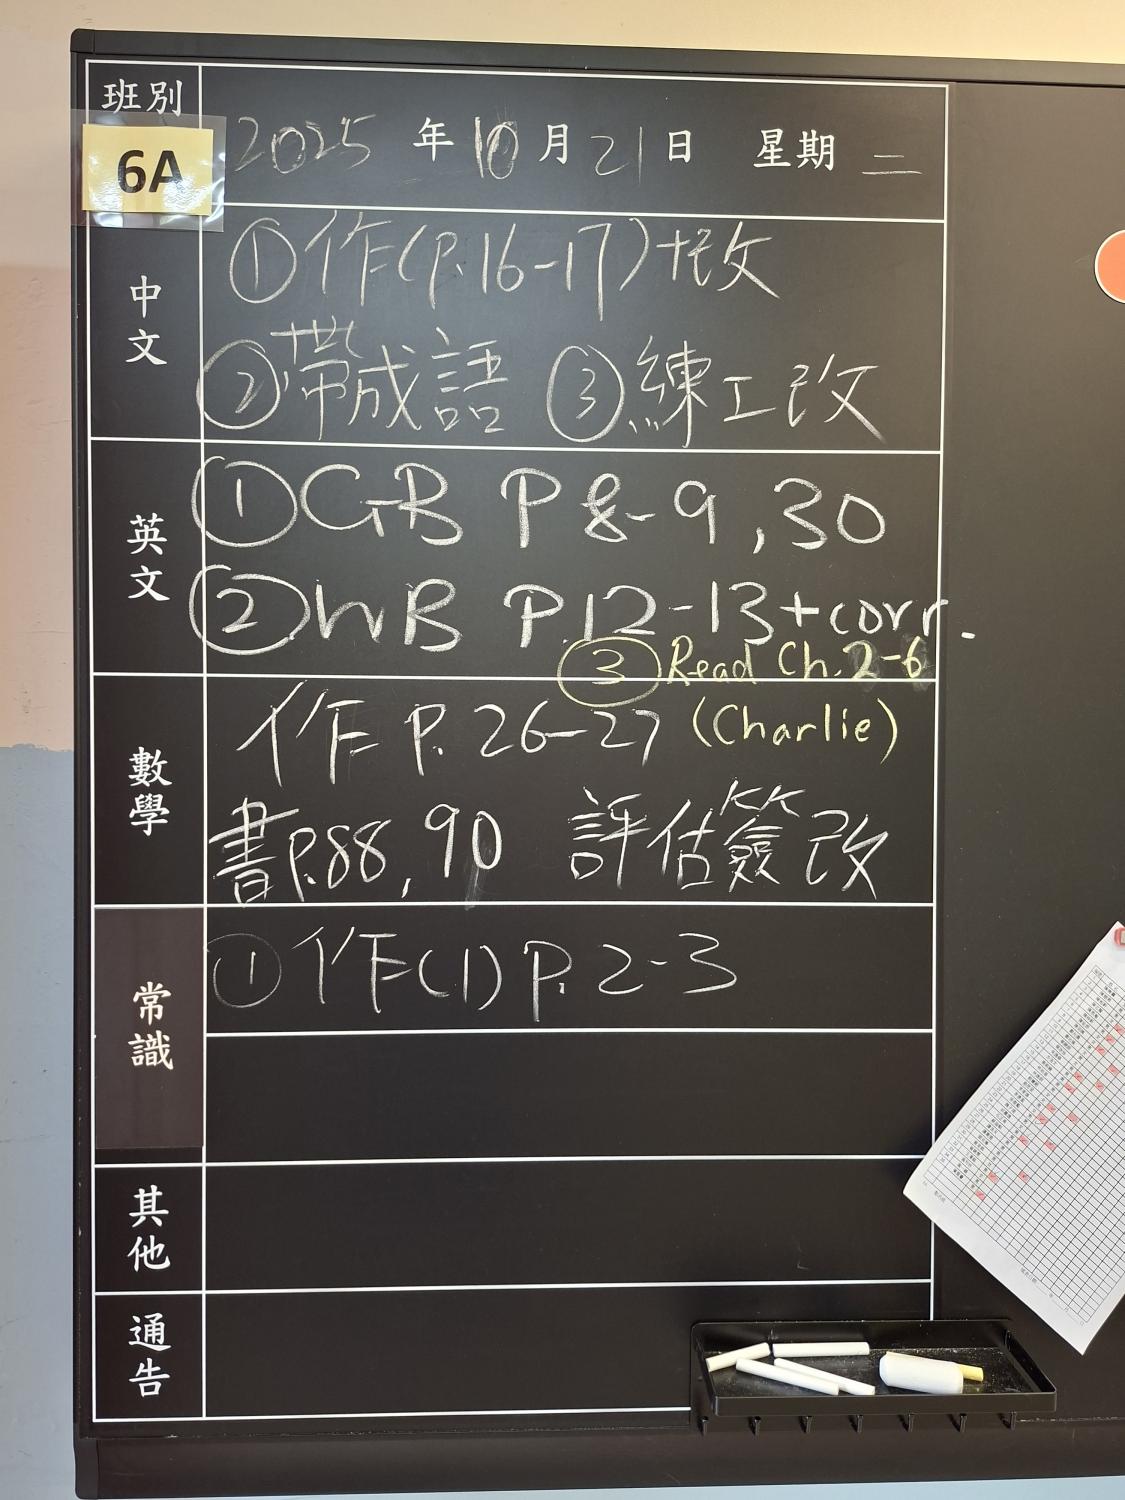 班別
6A
2025 年 10 月 21 日 星期 二
中文
①作(P.16-17)+改
②帶成語 ③練工改
英文
①GB P 8-9,30
②WB P.12-13+corr.
③Read Ch.2-6
(Charlie)
數學
作 P. 26-27
書P.88,90 評估簽改
常識
①作(1)P.2-3
其他
通告